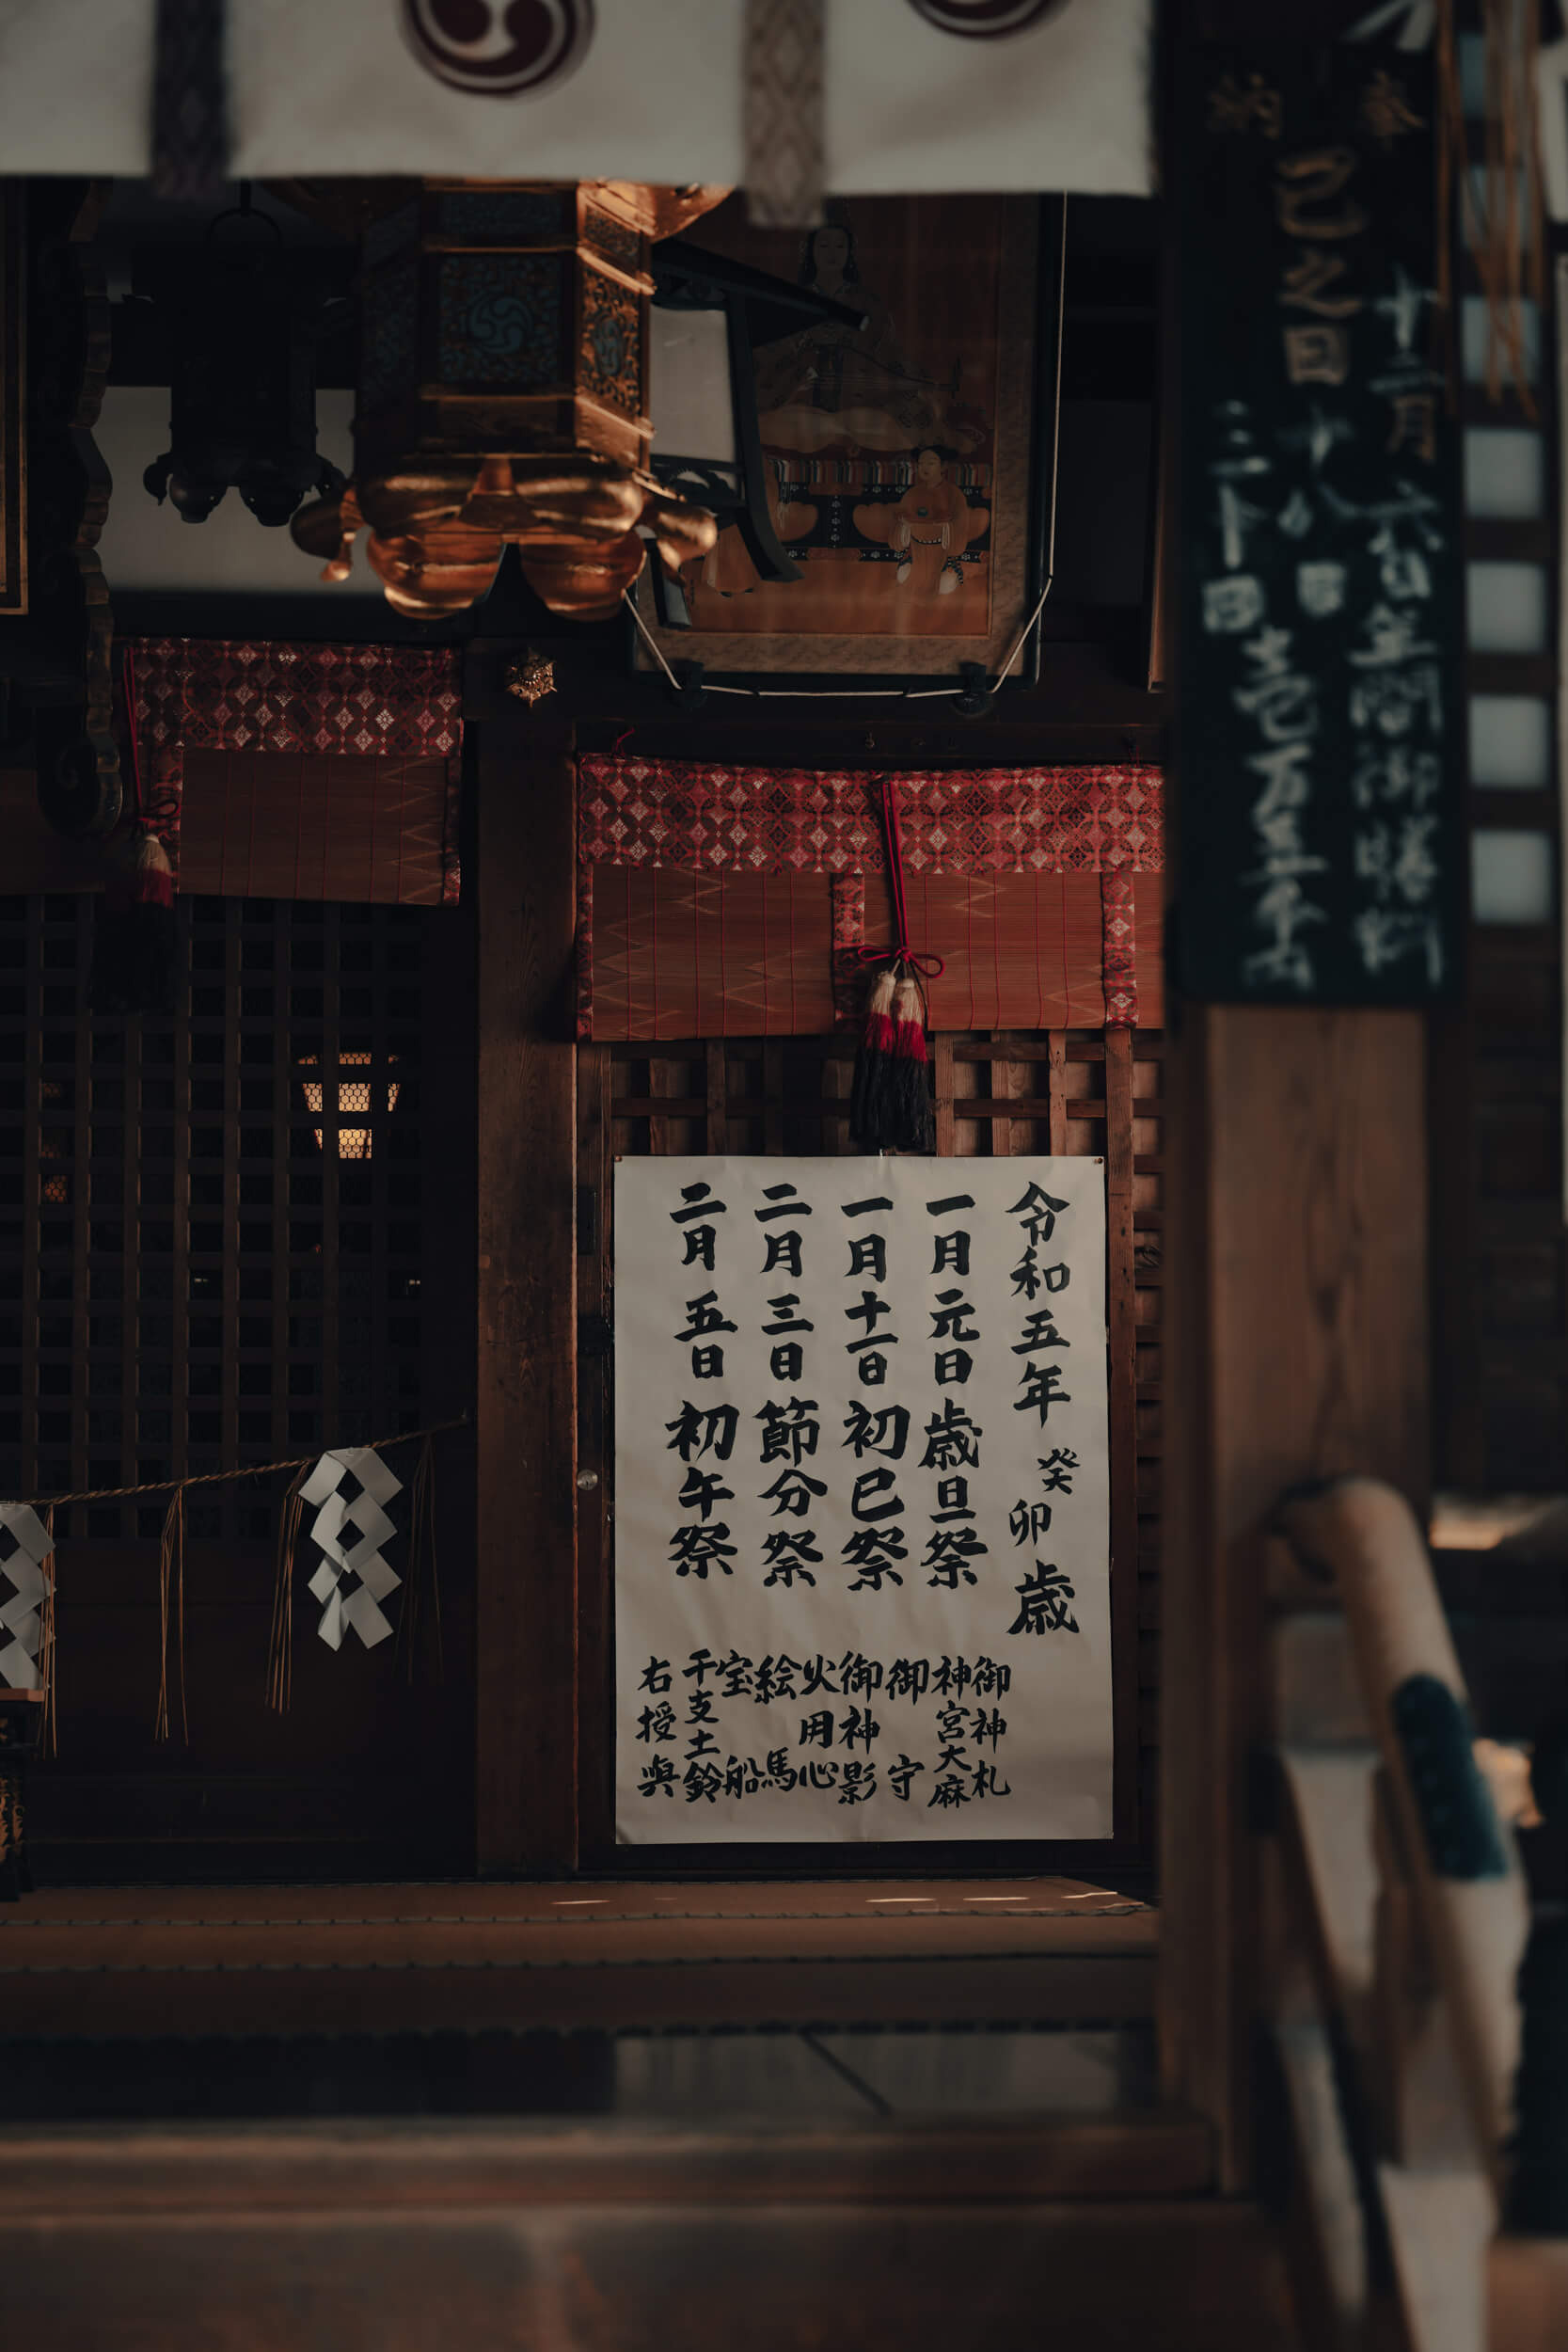 奉納
巳之日
十二月六日
十八日
三十日
年間御膳料
壱万五千円
令和五年癸卯歳
一月元日歳旦祭
一月十一日初巳祭
二月三日節分祭
二月五日初午祭
御神札
神宮大麻
御守
御神影
火用心
絵馬
宝船
干支土鈴
右授与